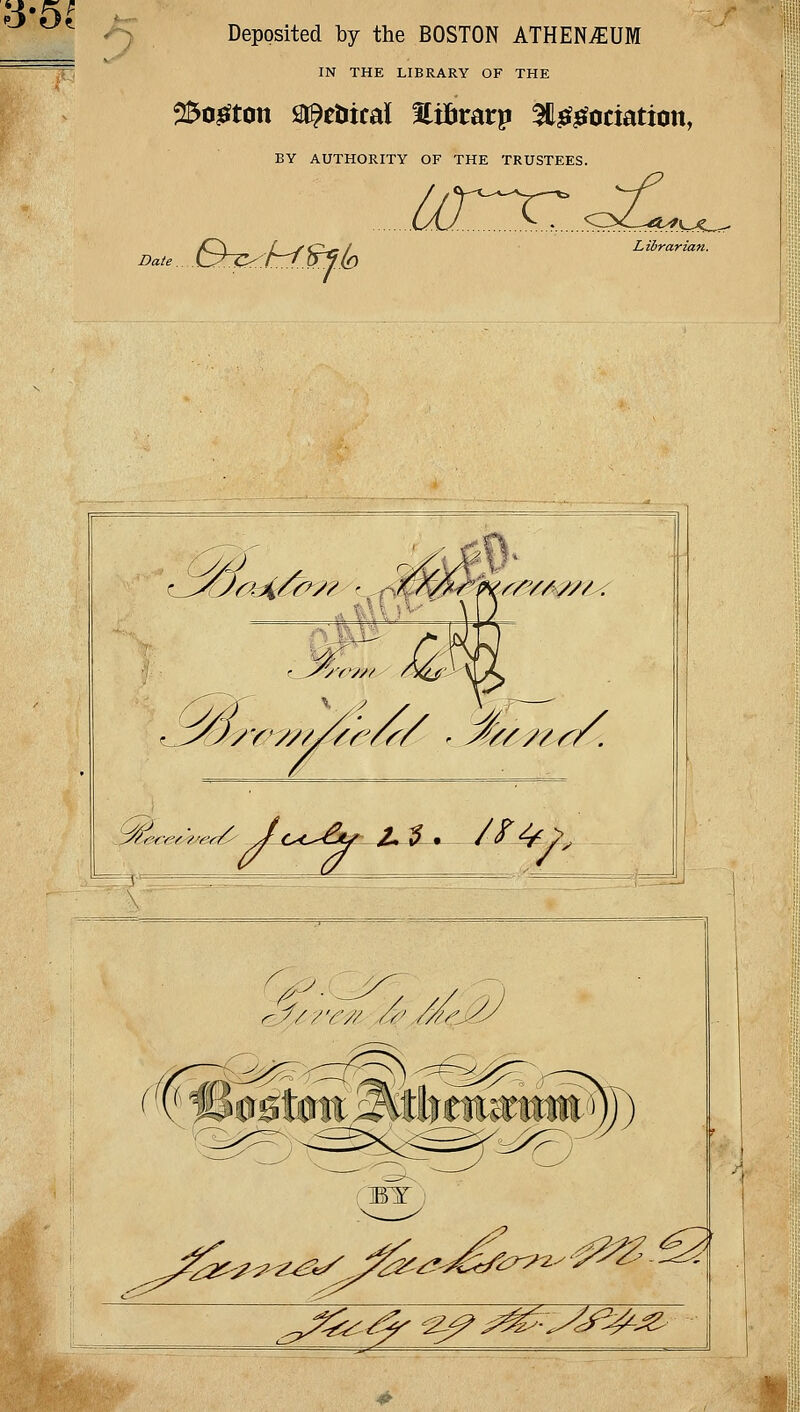 5
Deposited by the BOSTON ATHENÆUM
IN THE LIBRARY OF THE
Boston Medical Library Association,
BY AUTHORITY OF THE TRUSTEES.
Wm C. Lane
Librarian.
Date Oct 1896
Boston Athenæum.
CANCELLED.
From the
Bromfield Fund.
Received July 23. 1847.
Given to the
Boston Athenæum
BY
James Jackson M.D.
July 29th. 1842